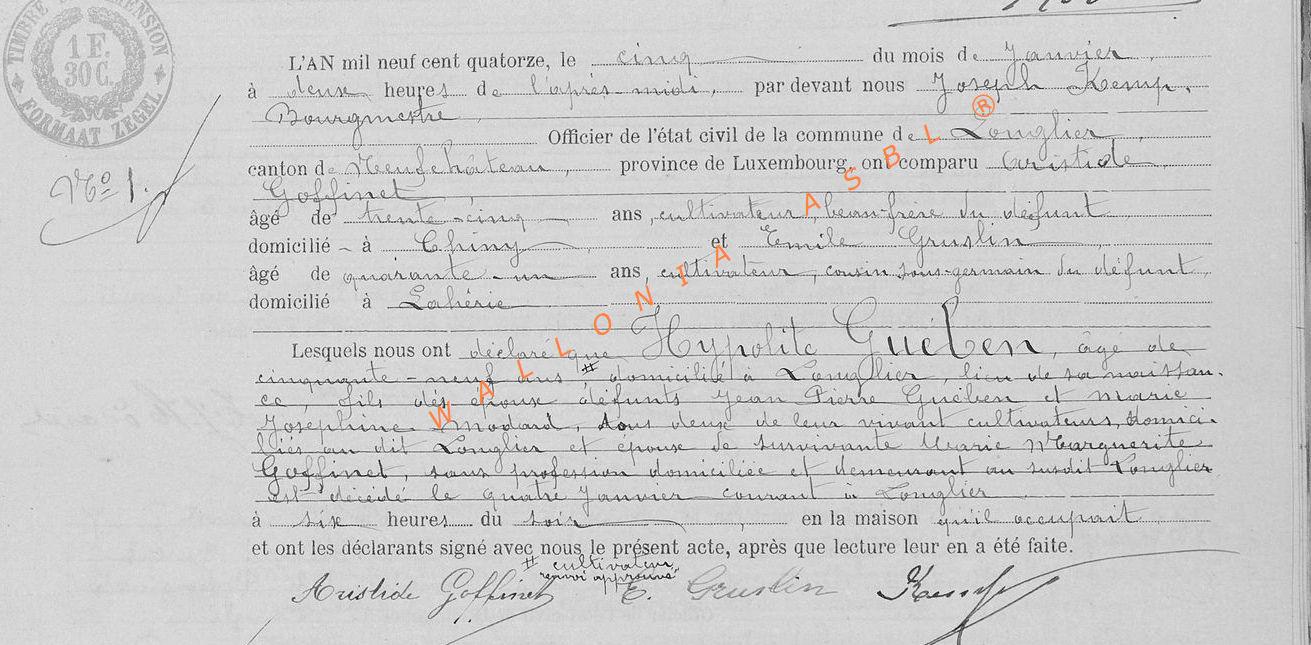 TIMBRE DIMENSION
1 F.
30 C.
FORMAAT ZEGEL
L'AN mil neuf cent quatorze, le cinq du mois de Janvier
à deux heures de l'après-midi, par devant nous Joseph Kemp,
Bourgmestre,
Officier de l'état civil de la commune de Longlier,
canton de Neufchâteau, province de Luxembourg, ont comparu Aristide
Goffinet,
N° 1.
âgé de trente-cinq ans, cultivateur, beau-frère du défunt
domicilié à Chiny et Emile Gruslin
âgé de quarante-un ans, cultivateur, cousin sous-germain du défunt,
domicilié à Lahérie
Lesquels nous ont déclaré que Hypolite Guében, âgé de
cinquante-neuf ans # domicilié à Longlier, lieu de sa naissan-
ce, fils des époux défunts Jean Pierre Guében et Marie
Josephine Modard, tous deux de leur vivant cultivateurs, domici-
liés au dit Longlier et époux de survivante Marie Marguerite
Goffinet, sans profession domiciliée et demeurant au susdit Longlier
est décédé le quatre Janvier courant à Longlier
à six heures du soir, en la maison qu'il occupait
et ont les déclarants signé avec nous le présent acte, après que lecture leur en a été faite.
# cultivateur,
renvoi approuvé
Aristide Goffinet E. Gruslin Kemp
WALLONIA ASBL ®